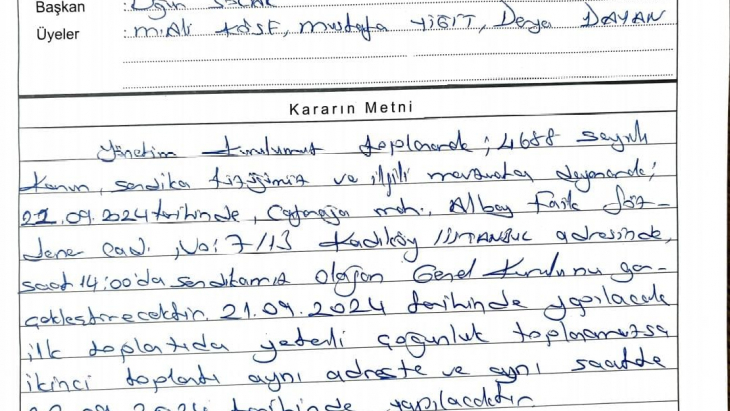 Başkan :
Üyeler : M.Ali KÖSE, Mustafa YİĞİT, Derya DAYAN
Kararın Metni
Yönetim Kurulumuz toplanarak; 4688 sayılı
Kanun, sendika tüzüğümüz ve ilgili mevzuata dayanarak;
.09.2024 tarihinde, Caferağa mah., Albay Faik Söz-
dener Cad., No: 7/13 Kadıköy/İSTANBUL adresinde,
saat 14:00'da sendikamız Olağan Genel Kurulunu ger-
çekleştirecektir. 21.09.2024 tarihinde yapılacak
ilk toplantıda yeterli çoğunluk toplanamazsa
ikinci toplantı aynı adreste ve aynı saatte
.09.2024 tarihinde yapılacaktır.